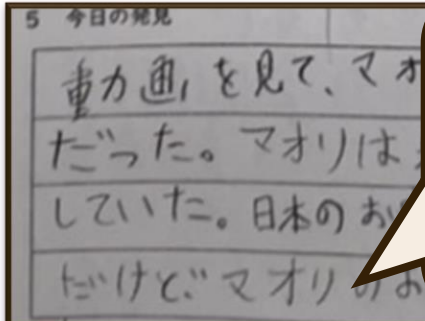 5 今日の発見
動画を見て、マオ
だった。マオリは
していた。日本のお
だけど、マオリのお